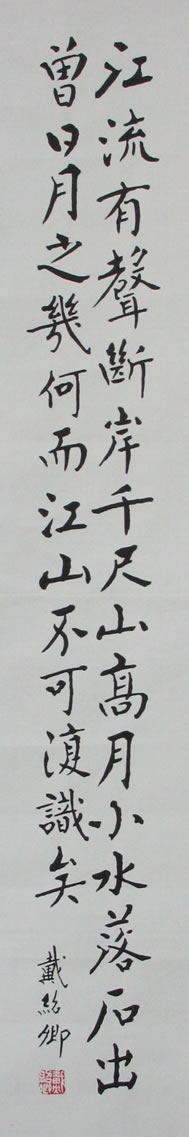 江流有聲斷岸千尺山高月小水落石出
曾日月之幾何而江山不可復識矣
戴紹卿